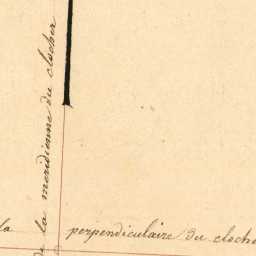 de la meridienne du clocher
la perpendiculaire du cloche